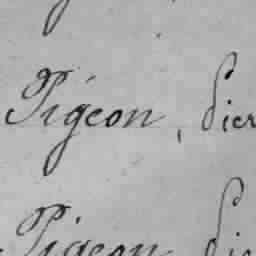 Pigeon, Pier
Pigeon Pie